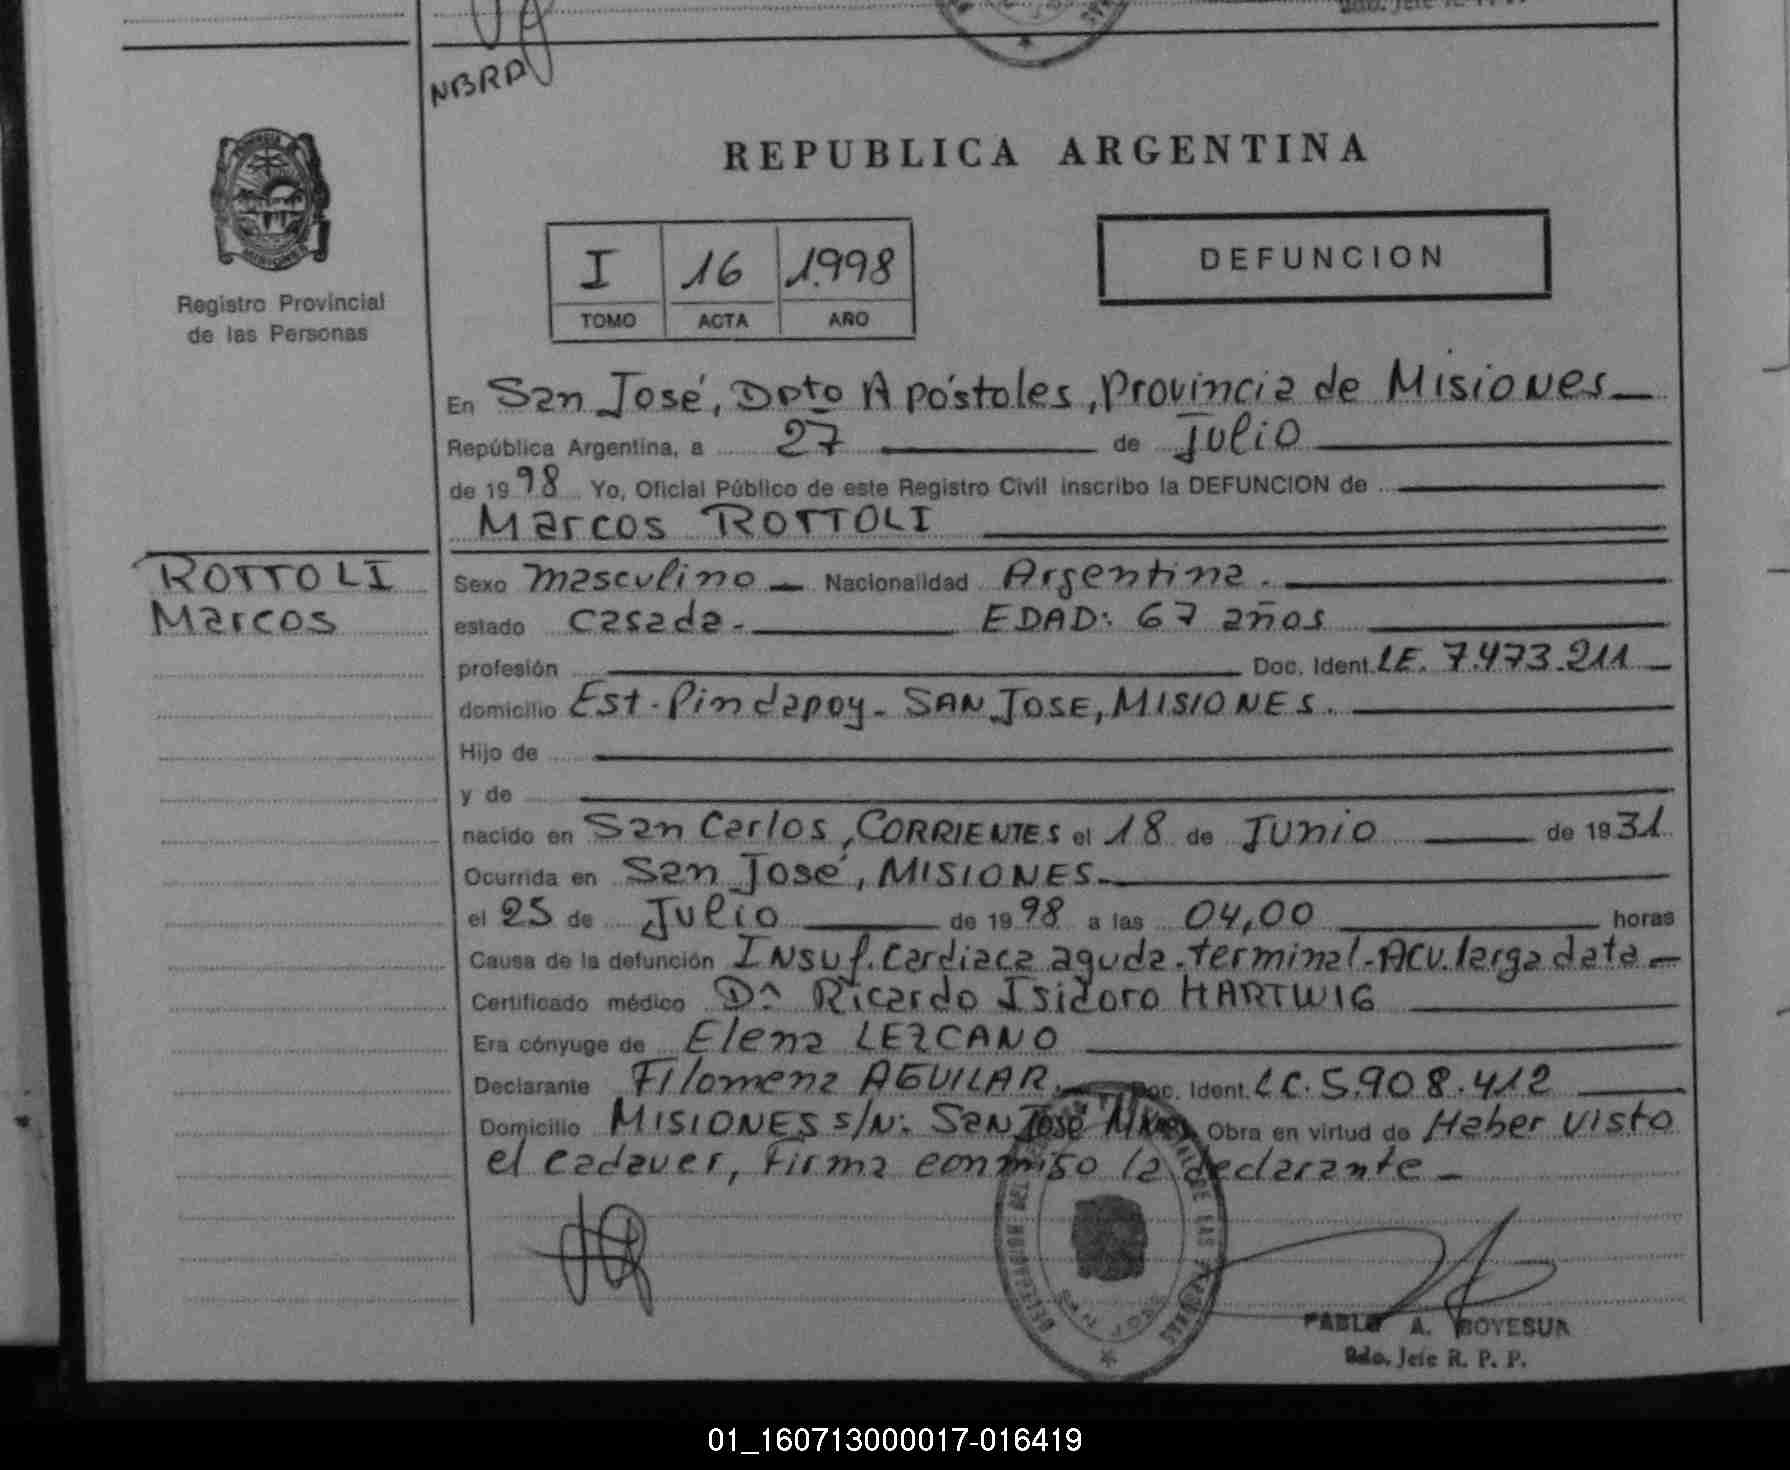 NBRD
REPUBLICA ARGENTINA
I 16 1.998
TOMO ACTA AÑO
DEFUNCION
Registro Provincial
de las Personas
En San José, Dpto Apóstoles, Provincia de Misiones
República Argentina, a 27 de Julio
de 1998 Yo, Oficial Público de este Registro Civil inscribo la DEFUNCION de
Marcos ROTTOLI
ROTTOLI
Marcos
Sexo masculino Nacionalidad Argentina.
estado casada. EDAD: 67 años
profesión Doc. Ident. LE. 7.473.211
domicilio Est. Pindapoy - SAN JOSE, MISIONES.
Hijo de
y de
nacido en San Carlos, CORRIENTES el 18 de Junio de 1931
Ocurrida en San José, MISIONES.
el 25 de Julio de 1998 a las 04,00 horas
Causa de la defunción Insuf. Cardiaca aguda - terminal - Acv. larga data
Certificado médico Dr Ricardo Isidoro HARTWIG
Era cónyuge de Elena LEZCANO
Declarante Filomena AGUILAR. Doc. Ident. LC. 5.908.412
Domicilio MISIONES s/N: San José Mnes Obra en virtud de Haber visto
el cadaver, Firma conmigo la declarante
DELEGACION DEL REGISTRO PROVINCIAL DE LAS PERSONAS
SAN JOSE
PABLO A. BOYESUK
2do. Jefe R. P. P.
01_160713000017-016419